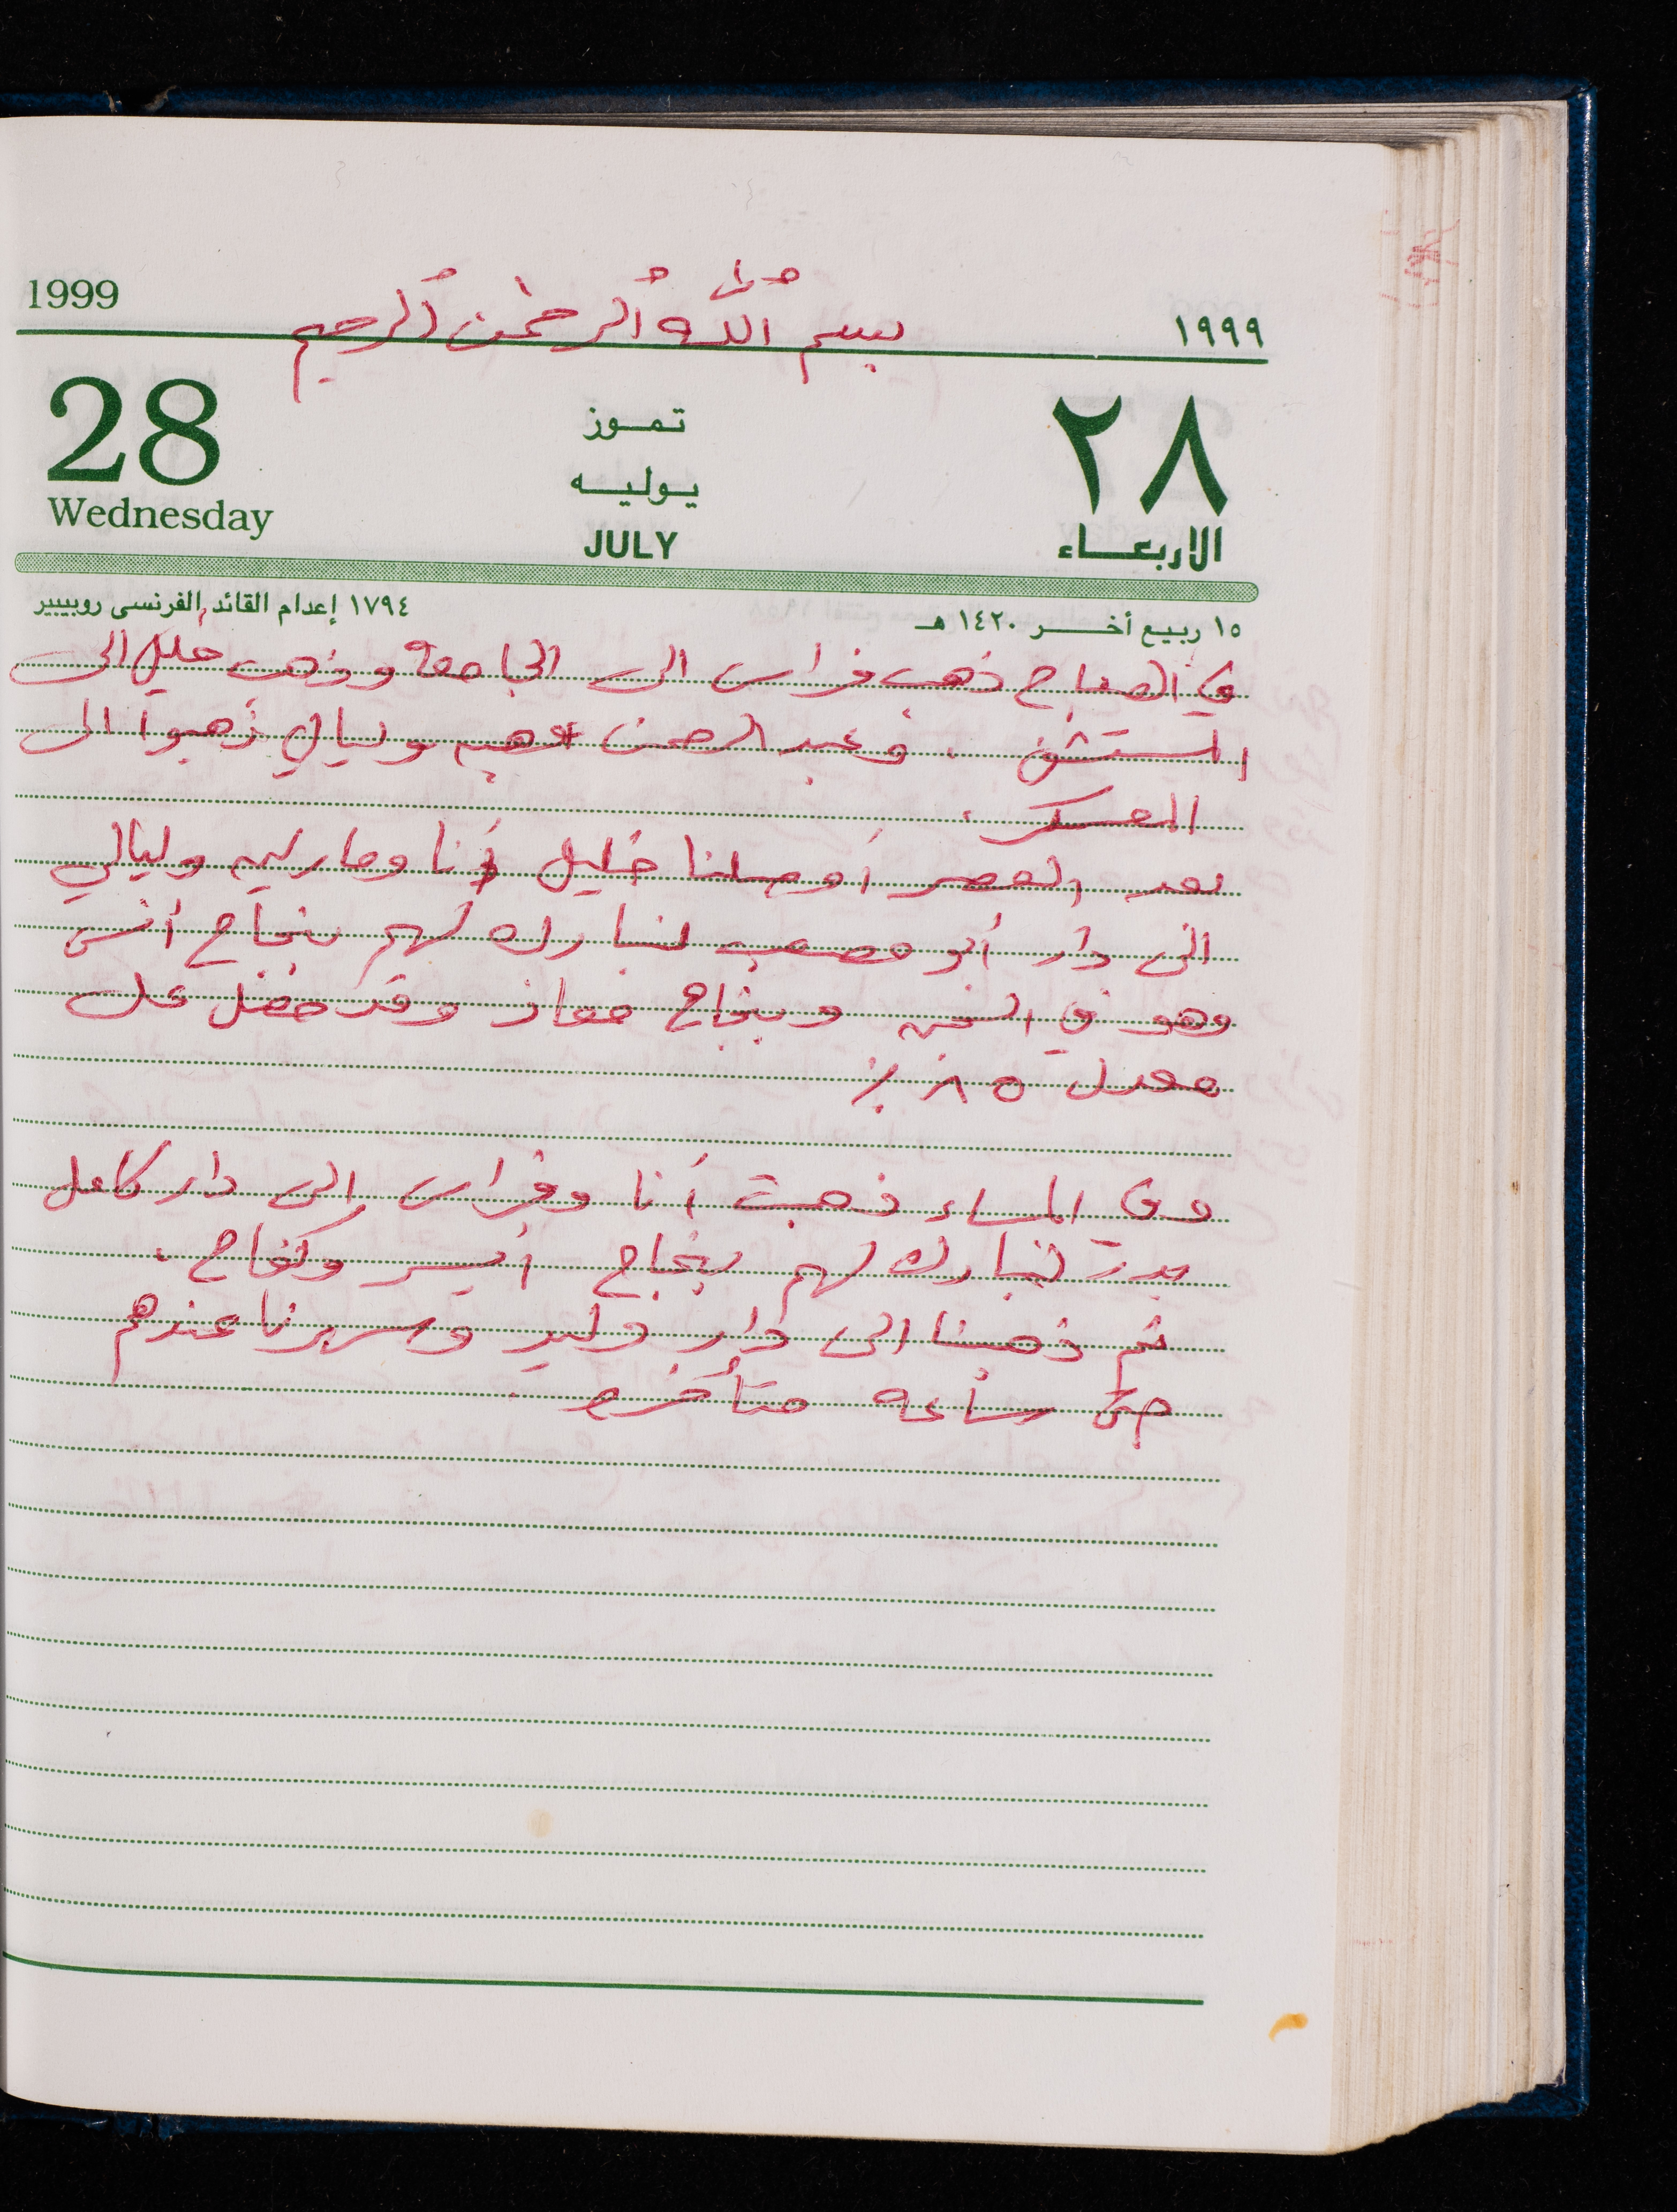 بسم الله الرحمن الرحيم
1999 ١٩٩٩
28 تموز ٢٨
يوليه
Wednesday JULY الاربعاء
١٥ ربيع أخر ١٤٢٠ هـ ١٧٩٤ إعدام القائد الفرنسى روبيبير
في الصباح ذهب فراس الى الجامعة وذهب خليل الى
المستشفى . وعبد الرحمن وهبه وليالي ذهبوا الى
المعسكر .
بعد العصر أوصلنا خليل أنا وماريه وليالي
الى دار أبو مصعب لنبارك لهم بنجاح أنس
وهو في السجن وبنجاح معاذ وقد حصل على
معدل ٨٥ ٪
وفي المساء ذهبت أنا وفراس الى دار كامل
بدر لنبارك لهم بنجاح أيسر وكفاح .
ثم ذهبنا الى دار وليد وسهرنا عندهم
حتى ساعه متأخره .